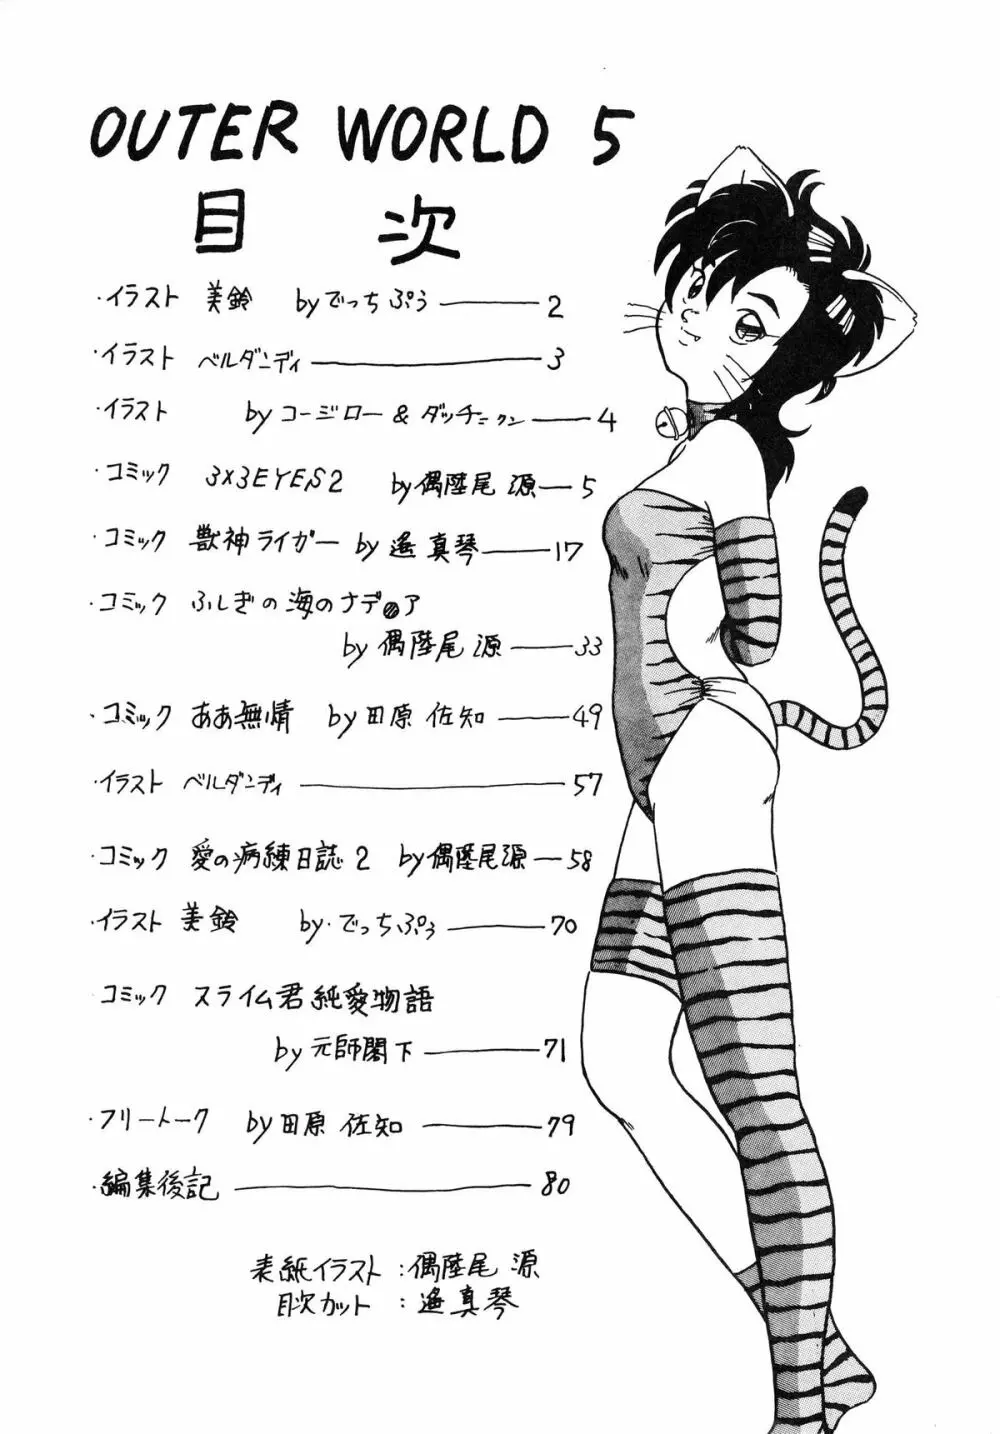 OUTER WORLD 5
目次
・イラスト 美鈴 byでっちぷぅ——2
・イラスト ベルダンディ——3
・イラスト by コージロー & ダッチ=クン——4
・コミック 3×3EYES2 by偶陸尾 源——5
・コミック 獣神ライガー by 遙 真琴——17
・コミック ふしぎの海のナデ●ア
by 偶陸尾 源——33
・コミック ああ無情 by田原 佐知——49
・イラスト ベルダンディ——57
コミック 愛の病練日誌2 by偶陸尾源—58
・イラスト 美鈴 by・でっちぷぅ——70
コミック スライム君純愛物語
by元師閣下——71
・フリートーク by田原 佐知——79
・編集後記——80
表紙イラスト:偶陸尾 源
目次カット :遙 真琴